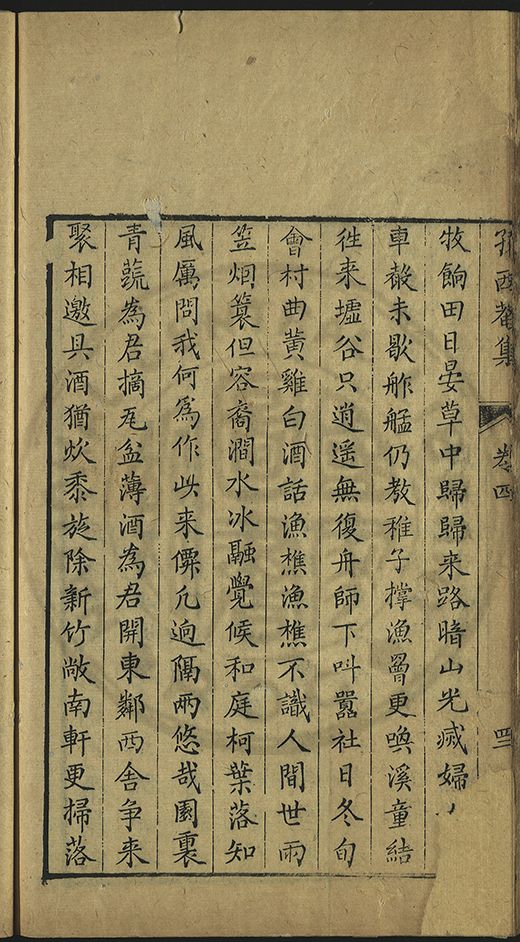 西菴集 卷四 四
牧餉田日晏草中歸歸来路暗山光滅婦
車聲未歇舴艋仍教稚子撑漁罾更喚溪童結
徃来墟谷只逍遥無復舟師下叫嚣社日冬旬
會村曲黄雞白酒話漁樵漁樵不識人間世雨
笠烟蓑但容裔澗水冰融覺候和庭柯葉落知
風厲問我何為作此来僊凡逈隔两悠哉園裏
青蔬為君摘瓦盆薄酒為君開東鄰西舍争来
聚相邀具酒猶炊黍旋除新竹敞南軒更掃落